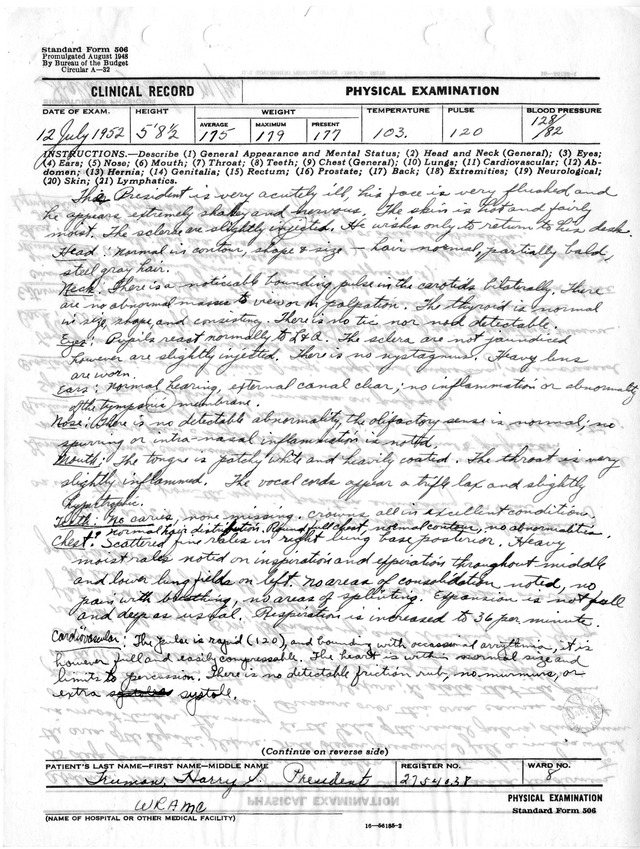 Standard Form 506
Promulgated August 1948
By Bureau of the Budget
Circular A—32
CLINICAL RECORD
PHYSICAL EXAMINATION
DATE OF EXAM. HEIGHT WEIGHT TEMPERATURE PULSE BLOOD PRESSURE
AVERAGE MAXIMUM PRESENT
12 July 1952 5'8½ 175 179 177 103. 120 128/82
INSTRUCTIONS.—Describe (1) General Appearance and Mental Status; (2) Head and Neck (General); (3) Eyes;
(4) Ears; (5) Nose; (6) Mouth; (7) Throat; (8) Teeth; (9) Chest (General); (10) Lungs; (11) Cardiovascular; (12) Ab-
domen; (13) Hernia; (14) Genitalia; (15) Rectum; (16) Prostate; (17) Back; (18) Extremities; (19) Neurological;
(20) Skin; (21) Lymphatics.
The President is very acutely ill, his face is very flushed, and
he appears extremely shaky and nervous. The skin is hot and fairly
moist. The sclera are slightly injected. He wishes only to return to his desk.
Head: Normal in contour, shape & size — hair normal, partially bald,
steel gray hair.
Neck: There is a noticable bounding pulse in the carotids bilaterally. There
are no abnormal masses to view or on palpation. The thyroid is normal
in size, shape, and consistency. There is no tic nor nod detectable.
Eyes: Pupils react normally to L & A. The sclera are not jaundiced
however are slightly injected. There is no nystagmus. Heavy lens
are worn.
Ears: Normal hearing, external canal clear; no inflammation or abnormality
of the tympanic membrane.
Nose: There is no detectable abnormality, the olfactory sense is normal; no
spurring or intra-nasal inflammation is noted.
Mouth: The tongue is patchy white and heavily coated. The throat is very
slightly inflammed. The vocal cords appear a trifle lax and slightly
hypertrophic.
Teeth: No caries, none missing. crowns all in excellent condition.
Normal hair distribution. Round full chest normal contour, no abnormalities.
Chest: Scattered fine rales in right lung base posterior. Heavy
moist rales noted on inspiration and expiration throughout middle
and lower lung fields on left. No areas of consolidation noted, no
pain with breathing, no areas of splinting. Expansion is not full
and deep as usual. Respiration is increased to 36 per minute.
Cardiovascular: The pulse is rapid (120), and bounding with occasional arrythmia, it is
however full and easily compressable. The heart is within normal size and
limits to percussion. There is no detectable friction rub, no murmurs, or
extra systole.
(Continue on reverse side)
PATIENT'S LAST NAME—FIRST NAME—MIDDLE NAME REGISTER NO. WARD NO.
Truman, Harry S. President 2754038 8
WRAMC
(NAME OF HOSPITAL OR OTHER MEDICAL FACILITY)
16—56185-2
PHYSICAL EXAMINATION
Standard Form 506